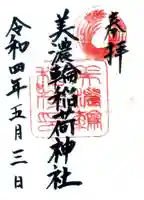 奉拝
美濃輪稲荷神社
令和四年五月三日